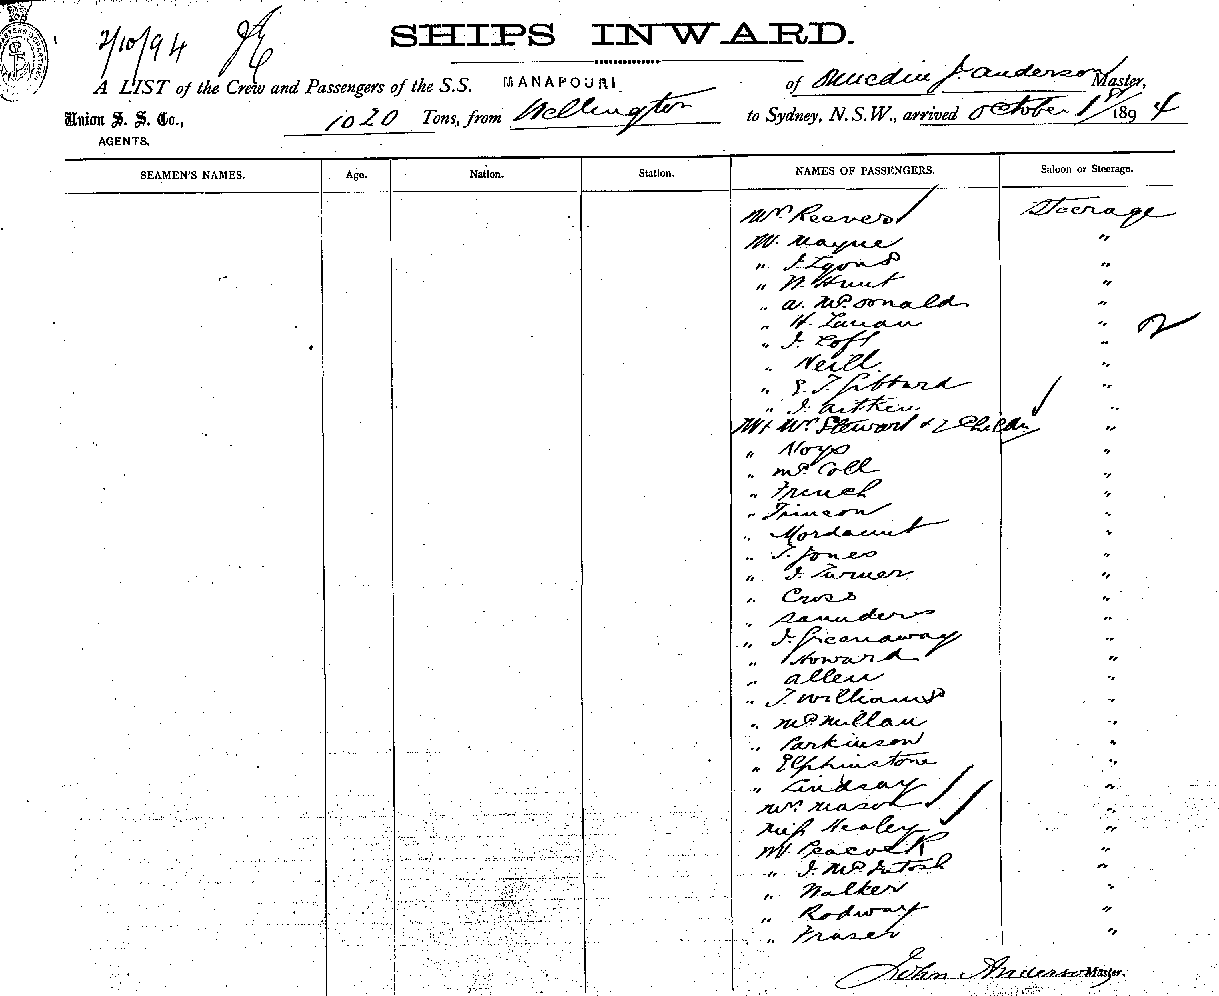 2/10/94
SHIPS INWARD.
A LIST of the Crew and Passengers of the S.S. MANAPOURI of Dunedin J. Anderson Master,
Union S. S. Co., 1020 Tons, from Wellington to Sydney, N.S.W., arrived October 1st 1894
AGENTS.
SEAMEN'S NAMES. Age. Nation. Station. NAMES OF PASSENGERS. Saloon or Steerage.
Mrs Reeves Steerage
Mr. Mayne "
" J. Lyons "
" W. Hunt "
" A. McDonald "
" H. "
" J. Loft "
" Neill "
" E. T. Gibbard "
" J. Aitken "
Mr & Mrs Stewart & 2 Childn "
" Hoys "
" McColl "
" French "
" "
" Mordaunt "
" T. Jones "
" J. Turner "
" Cross "
" Saunders "
" J. Greenaway "
" Howard "
" Allen "
" T. Williams "
" McMillan "
" Parkinson "
" Elphinstone "
" Lindsay "
Mrs Mason "
Miss Healey "
Mr Peacock "
" J. McIntosh "
" Walker "
" Rodway "
" Fraser "
John Anderson Master.